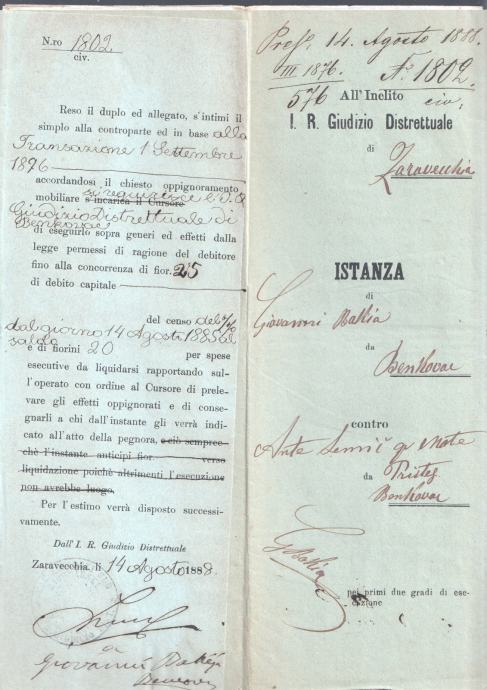 N.ro 1802
civ.
Reso il duplo ed allegato, s'intimi il
simplo alla controparte ed in base alla
Transazione 1 Settembre
1876
accordandosi il chiesto oppignoramento
mobiliare s'incarica il Cursore si requirisce l'I. R.
Giudizio Distrettuale di
Benkovac
di eseguirlo sopra generi ed effetti dalla
legge permessi di ragione del debitore
fino alla concorrenza di fior. 25
di debito capitale
del censo del
dal giorno 14 Agosto 1885 al
saldo
e di fiorini 20 per spese
esecutive da liquidarsi rapportando sul-
l'operato con ordine al Cursore di prele-
vare gli effetti oppignorati e di conse-
gnarli a chi dall'instante gli verrà indi-
cato all'atto della pegnora, e ciò sempre-
chè l'instante anticipi fior. verso
liquidazione poichè altrimenti l'esecuzione
non avrebbe luogo.
Per l'estimo verrà disposto successi-
vamente.
Dall' I. R. Giudizio Distrettuale
Zaravecchia, li 14 Agosto 1888.
a
Giovanni Bakija
Benkovac
Pres. 14. Agosto 1888.
III 1876. No. 1802.
576 civ.
All'Inclito
I. R. Giudizio Distrettuale
di
Zaravecchia
ISTANZA
di
Giovanni Bakija
da
Benkovac
contro
Ante Semić qm Mate
da Pristeg
Benkovac
GBakija
nei primi due gradi di ese-
cuzione